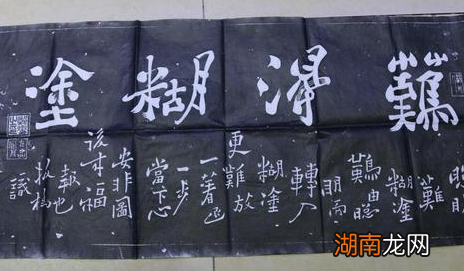 難得糊塗
聰明
難
糊塗
難由聰
明而
轉入
糊塗
更難放
一著退
一步
當下心
安非圖
後來福
報也
板橋
識
湖南龙网